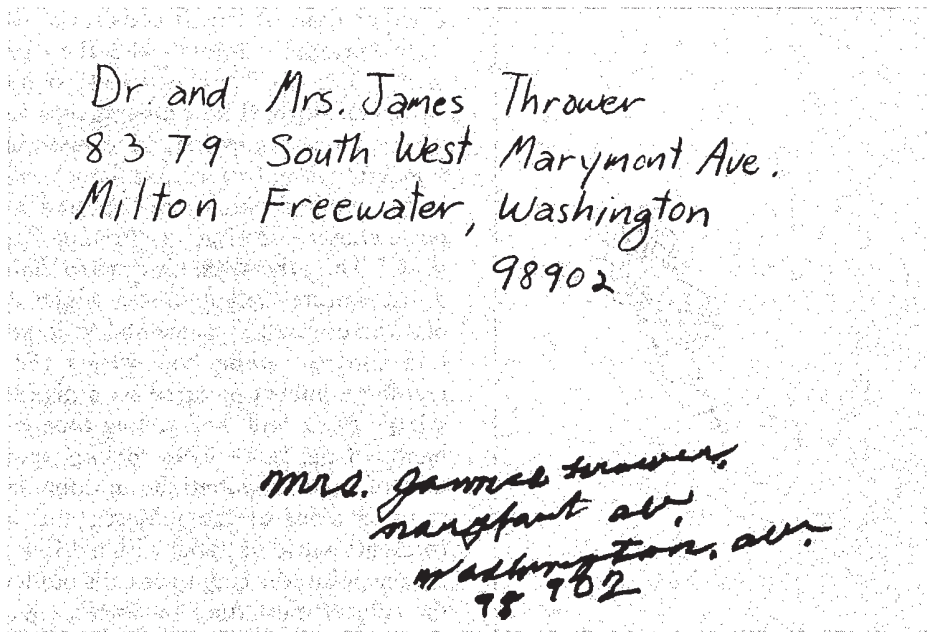 Dr. and Mrs. James Thrower
8379 South West Marymont Ave.
Milton Freewater, Washington
98902
Mrs. Jammes trower.
av.
Washington, av.
98 902